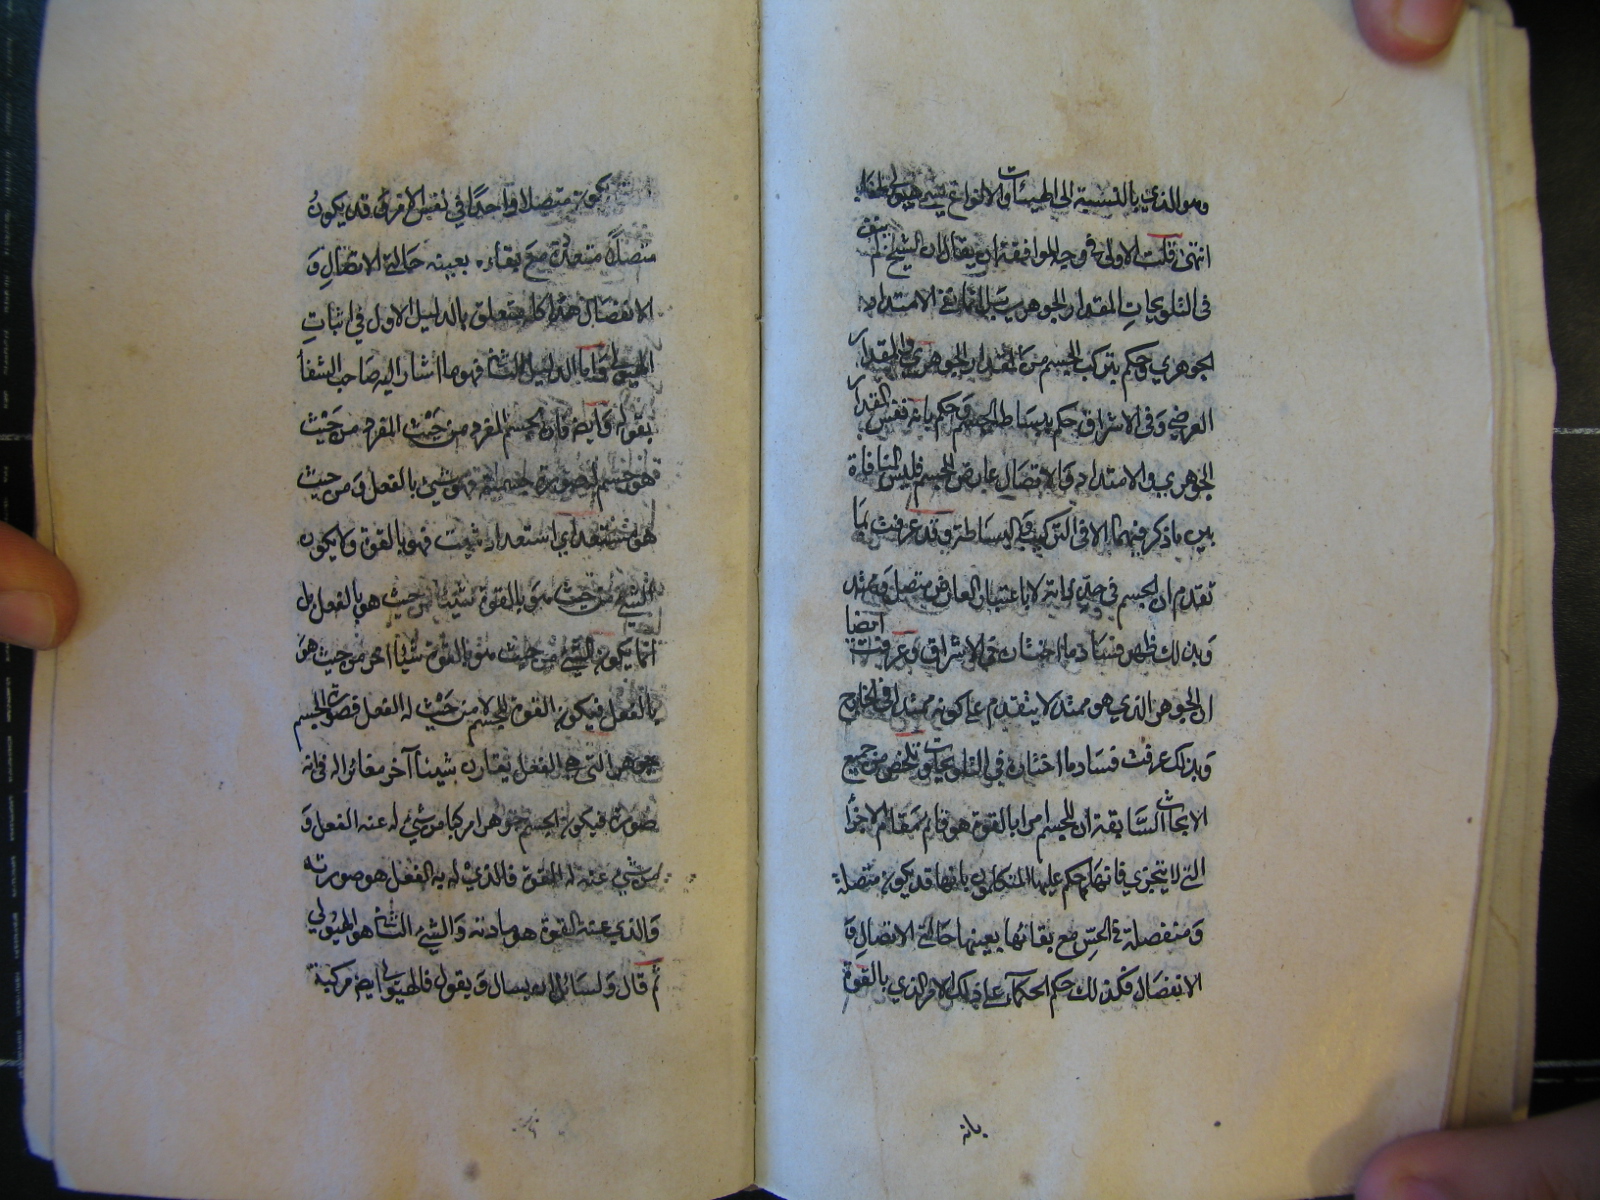 وهو الذي بالنسبة الى الهيئات والانواع يسمى هيولى
انتهى قلت الاولى في وجه الموافقة ان يقال ان الشيخ لم ينف
في التلويحات المقدار الجوهري بل انما نفى الامتداد
الجوهري وحكم بتركب الجسم من المقدار الجوهري والمقدار
العرضي وفي الاشراق حكم ببساطة الجسم وحكم بانه نفس المقدار
الجوهري والامتداد والاتصال عارض للجسم فليس المنافاة
بين ما ذكر فيهما الا في التركيب والبساطة وقد عرفت بما
تقدم ان الجسم في حد ذاته لا باعتبار العارض متصل وممتد
وبذلك ظهر فساد ما اختاره في الاشراق بل عرفت ايضا
ان الجوهر الذي هو ممتد لا يتقدم على كونه ممتدا في الخارج
وبذلك عرفت فساد ما اختاره في التلويحات وتلخص من جميع
الابحاث السابقة ان للجسم امرا بالقوة هو قائم مقام الاجزأ
التي لا يتجزي فانها كما حكم عليها المتكلمون بانها قد يكون متصلة
ومنفصلة في الحس مع بقائها بعينها حالتي الاتصال و
الانفصال فكذلك حكم الحكمآء على ذلك الامر الذي بالقوة
بانه
يكون متصلا واحدا في نفس الامر وقد يكون
متصلا متعددة مع بقاءه بعينه حالتي الاتصال و
الانفصال هذا كله متعلق بالدليل الاول في اثبات
الهيولى واما الدليل الثاني فهو ما اشار اليه صاحب الشفأ
بقوله وايضه فان الجسم المفرد من حيث المفرد من حيث
هو جسم له صورة جسمية فهو شيئ بالفعل ومن حيث
هو مستعد اي استعداد شئت فهو بالقوة ولا يكون
الشيئ من حيث هو بالقوة شيئا من حيث هو بالفعل بل
انما يكون للشيئ من حيث هو بالقوة شيئا اخر من حيث هو
بالفعل فيكون القوة للجسم لا من حيث له الفعل فصورة الجسم
جوهر التي هي الفعل يقارن شيئا آخر مغائرا له في انه
صورة فيكون الجسم جوهرا مركبا من شيئ له عنه الفعل و
من شيئ عنه له القوة فالذي له به الفعل هو صورته
والذي عنه القوة هو مادته والشيئ الثاني هو الهيولي
ثم قال ولسائل ان يسال ويقول فالهيولى ايضه مركبة